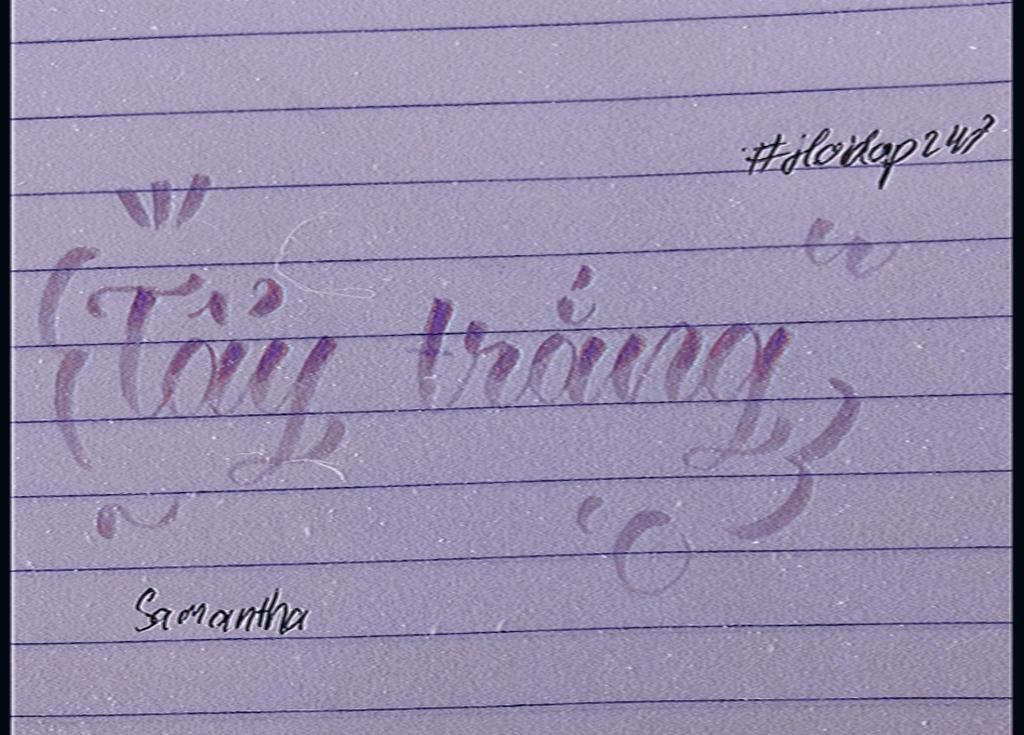 #hoidap247
Tẩy trắng
Samantha